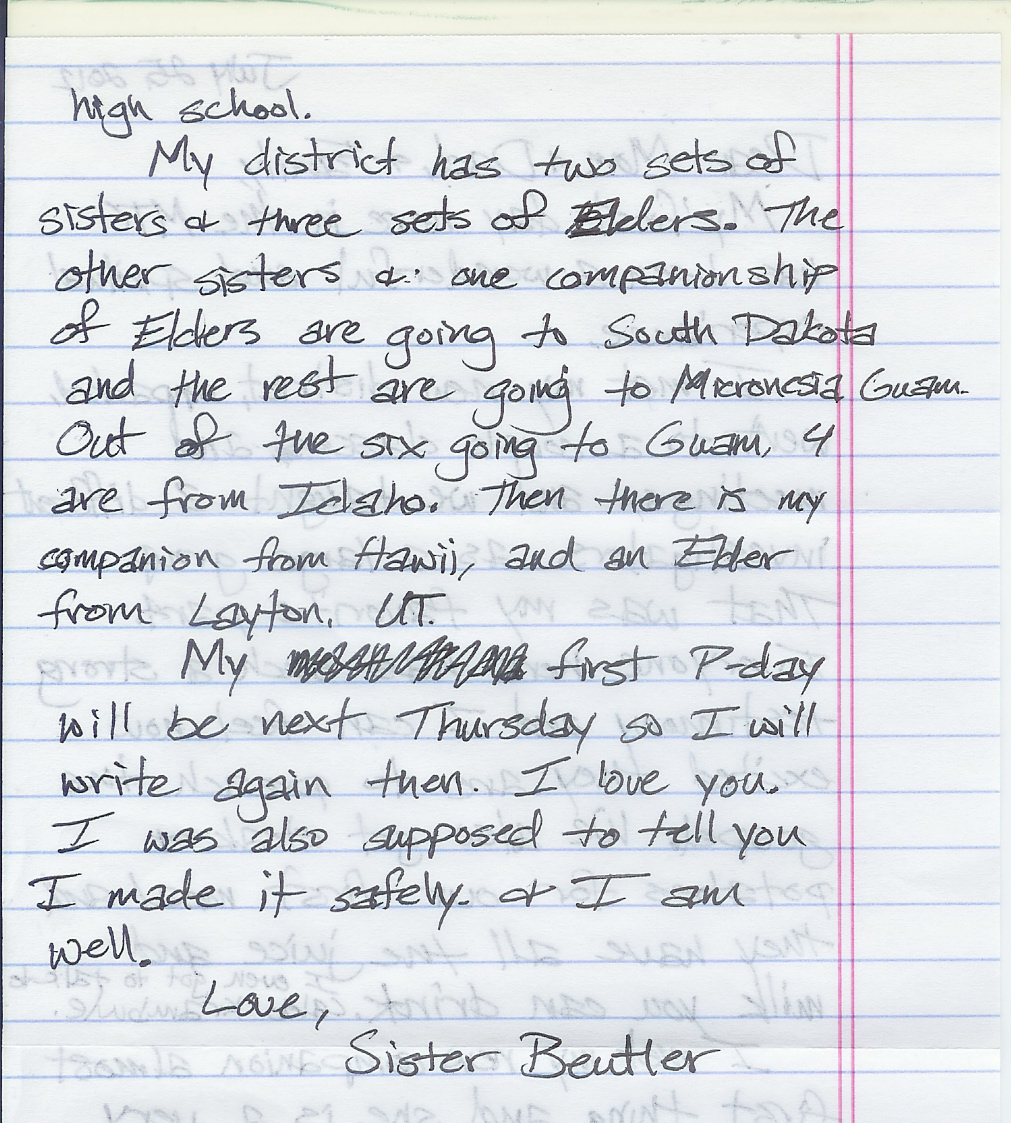 high school.
My district has two sets of
sisters & three sets of Elders. The
other sisters & one companionship
of Elders are going to South Dakota
and the rest are going to Micronesia Guam.
Out of the six going to Guam, 4
are from Idaho. Then there is my
companion from Hawii, and an Elder
from Layton, UT.
My first P-day
will be next Thursday so I will
write again then. I love you.
I was also supposed to tell you
I made it safely. & I am
well.
Love,
Sister Beutler